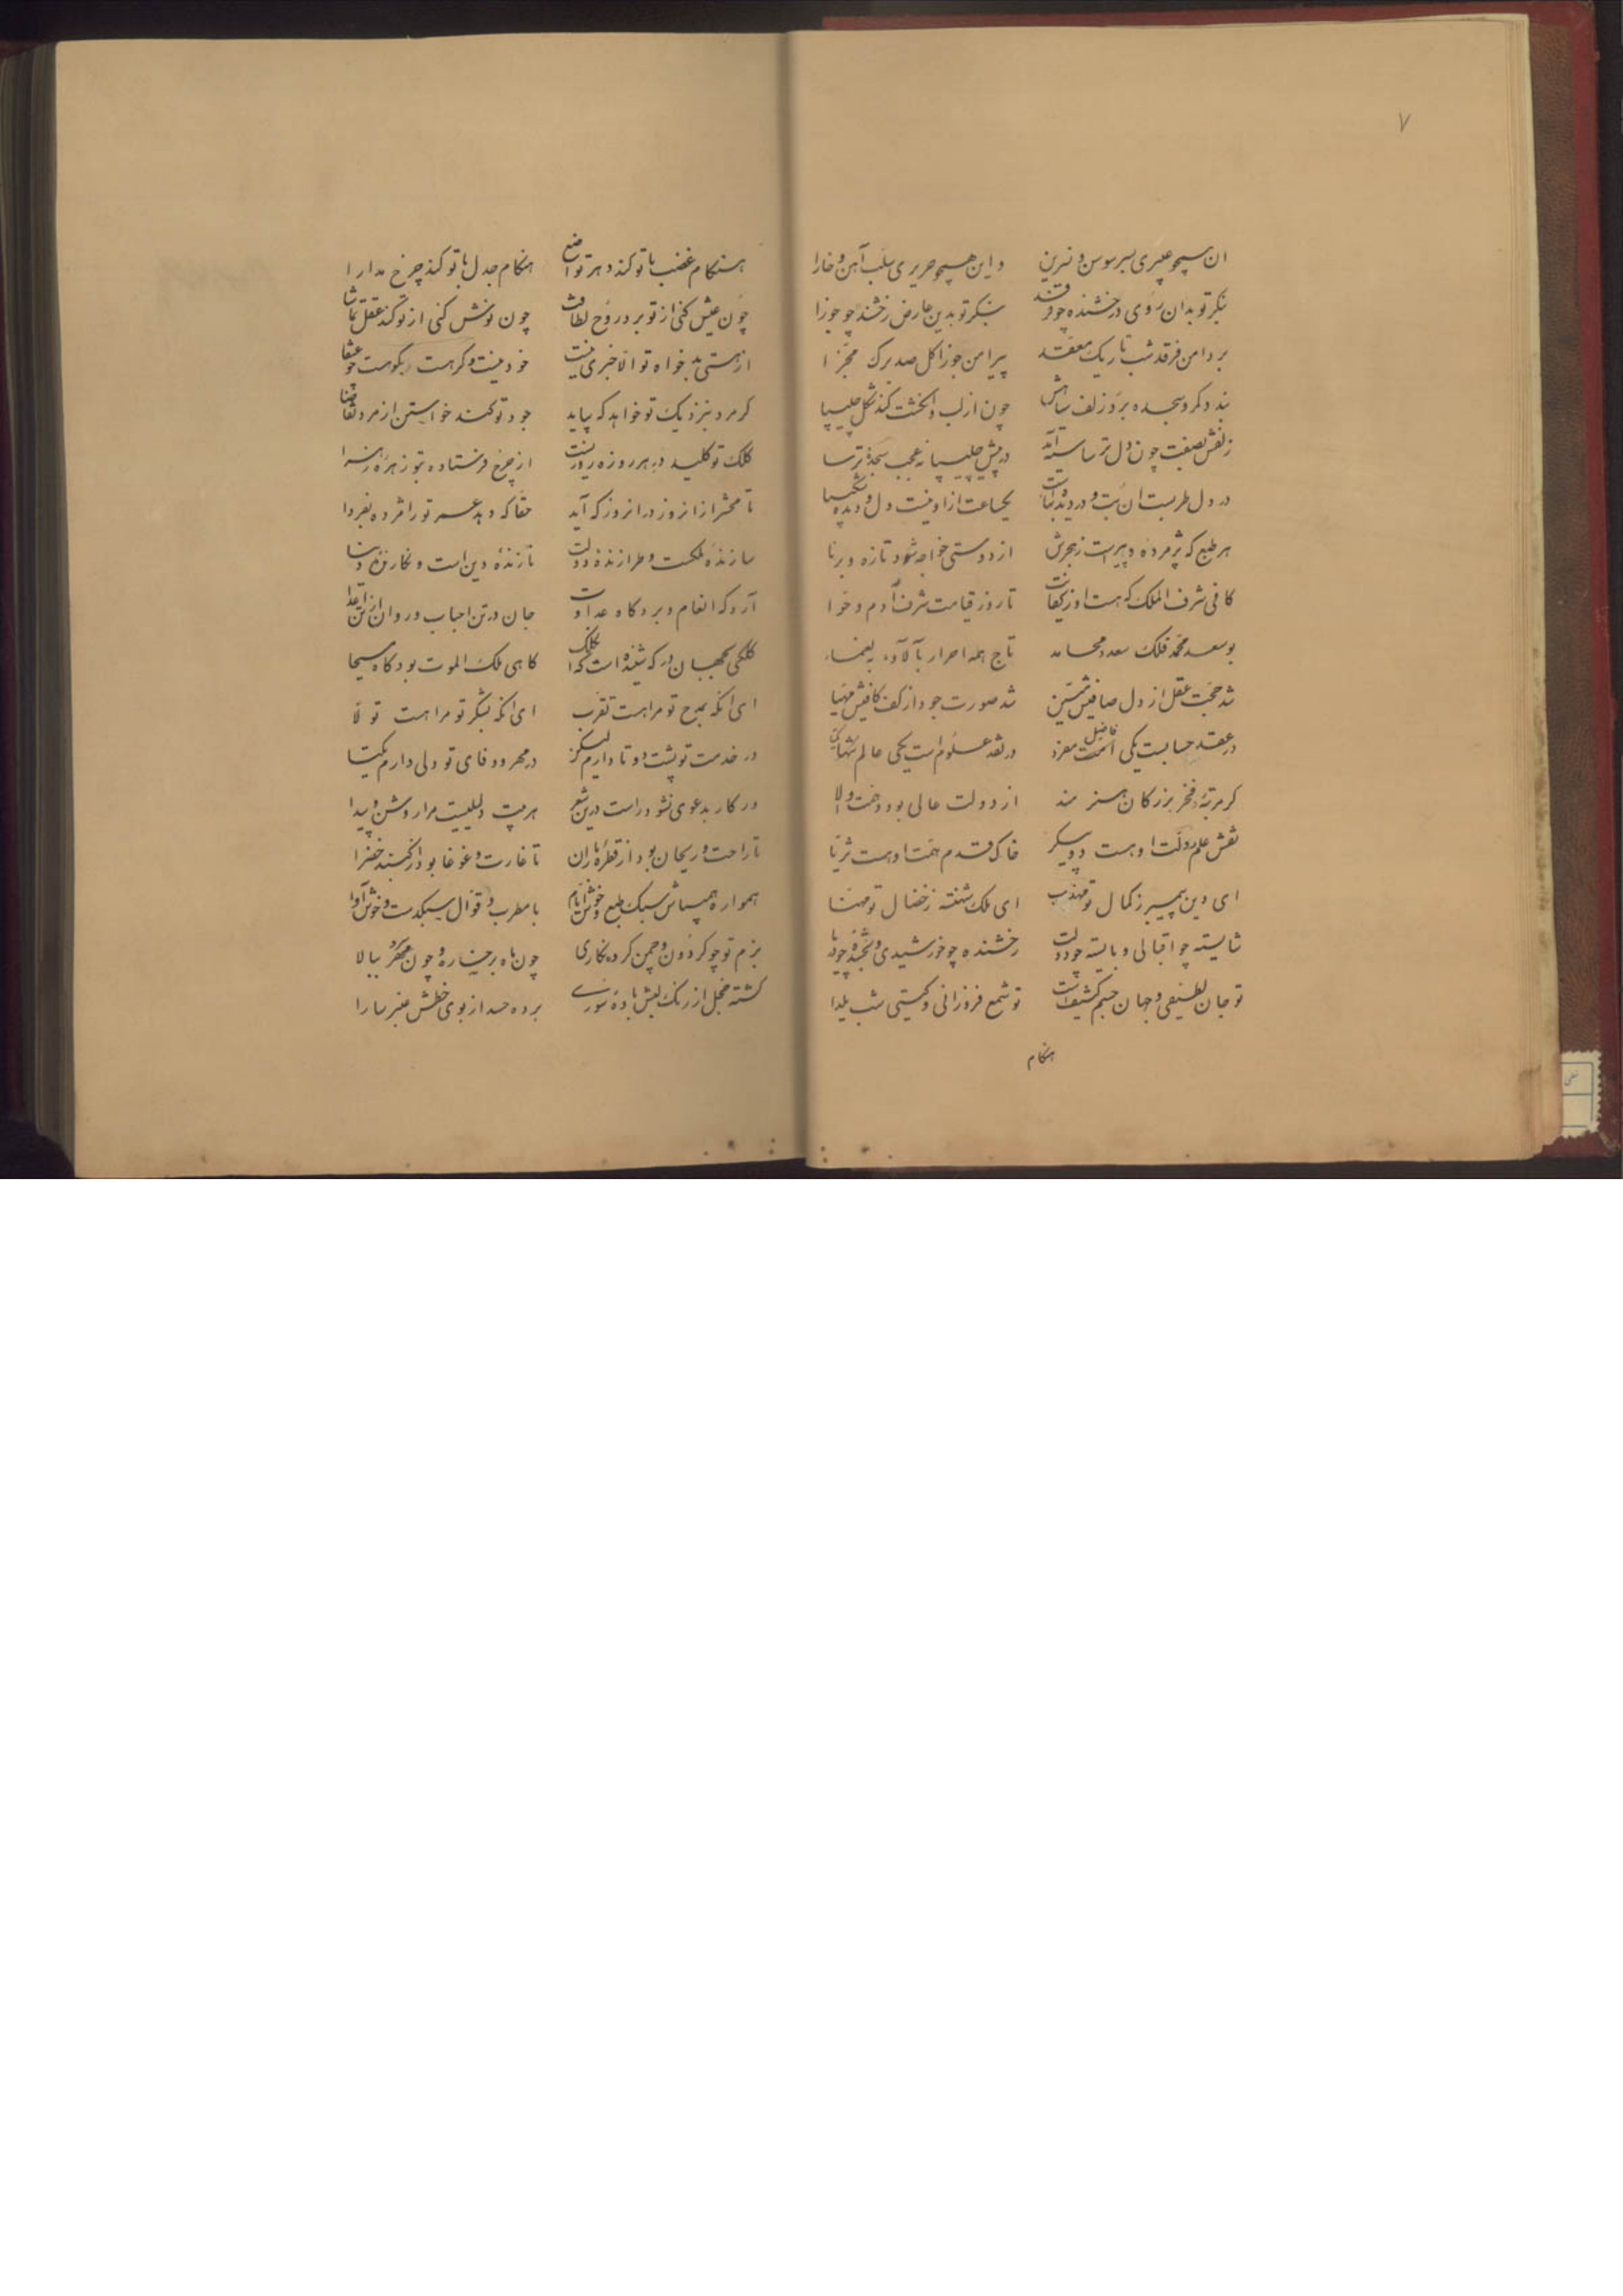 ۷
ان همچو عبیری بسر سوسن و نسرین و این همچو حریری بسلب آهن و خارا
بنگر تو بدان روی درخشنده چو فرقد بنگر تو بدین عارض رخشنده چو جوزا
بر دامن فرقد شب تاریک معقد پیرامن جوزا کل صد برک مجزا
بندد کمر و سجده برد زلف سیاهش چون از لب و انکشت کند شکل چلیپا
زلفش بصفت چون دل ترسا سیه آمد در پیش چلیپا نه عجب سجده ترسا
در دل طربست ان بت و در دیده تماشاست یکساعت ازاو نیست دل و دیده شکیبا
هر طبع که پژمرده و پیرست ز هجرش از دوستی خواجه شود تازه و برنا
کافی شرف الملک که هست او ز کفایت تا روز قیامت شرف آدم و حوا
بو سعد محمد فلک سعد و محامد تاج همه احرار بآلاء و بنعماء
شد حجت عقل از دل صافیش مبین شد صورت جود از کف کافیش مهیا
در عقد حسابست یکی فاضل مفرد در نقد علوم است یکی عالم تنها
کر مرتبه و فخر بزرکان هنرمند از دولت عالی بود و همت والا
نقش علم دولت او هست دو پیکر خاک قدم همت او هست ثریا
ای دین پیمبر ز کمال تو مهذب ای ملک شهنشه ز خصال تو مهنا
شایسته چو اقبالی و بایسته چو دولت رخشنده چو خورشیدی و بخشنده چو دریا
تو جان لطیفی و جهان جسم کثیفست تو شمع فروزانی و کیتی شب یلدا
هنکام
هنکام غضب با تو کند دهر تواضع هنکام جدل با تو کند چرخ مدارا
چون عیش کنی از تو برد روح لطافت چون نوش کنی از تو کند عقل تماشا
از هستی بدخواه تو الا خبری نیست خود نیست وکر هست بکوهست چو عنقا
کر مرد بنزدیک تو خواهد که بیاید جود تو کند خواستن از مرد تقاضا
کلک تو کلید در هر روزه روزیست از چرخ فرستاده بتو زهره زهرا
تا محشر از انروز در انروز که آید حقا که دهد عسر تو را مژده بفردا
سازنده ملکست و طرازنده دولت نازنده دین است و نکارنده دنیا
آرد که انعام و برد کاه عداوت جان در تن احباب و روان از تن اعدا
کلکی بجهان در که شنیده است که کلک کاهی ملک الموت بود کاه مسیحا
ای انکه بمدح تو مرا هست تقرب ای انکه بشکر تو مرا هست تولا
در خدمت تو پشت دو تا دارم لیکن در مهر و وفای تو دلی دارم یکتا
در کار بدعوی نشود راست درین شعر هر بیت دلیلیست مرا روشن و پیدا
تا راحت و ریحان بود از قطره باران تا غارت و غوغا بود از کنبد خضرا
همواره همی باش سبک طبع و خوش ایام با مطرب و قوال سبکدست و خوش آوا
بزم تو چو کردون و چمن کرده نکاری چون ماه برخساره و چون سرو ببالا
کشته خجل از رنک لبش باده سوری برده حسد از بوی خطش عنبر سارا